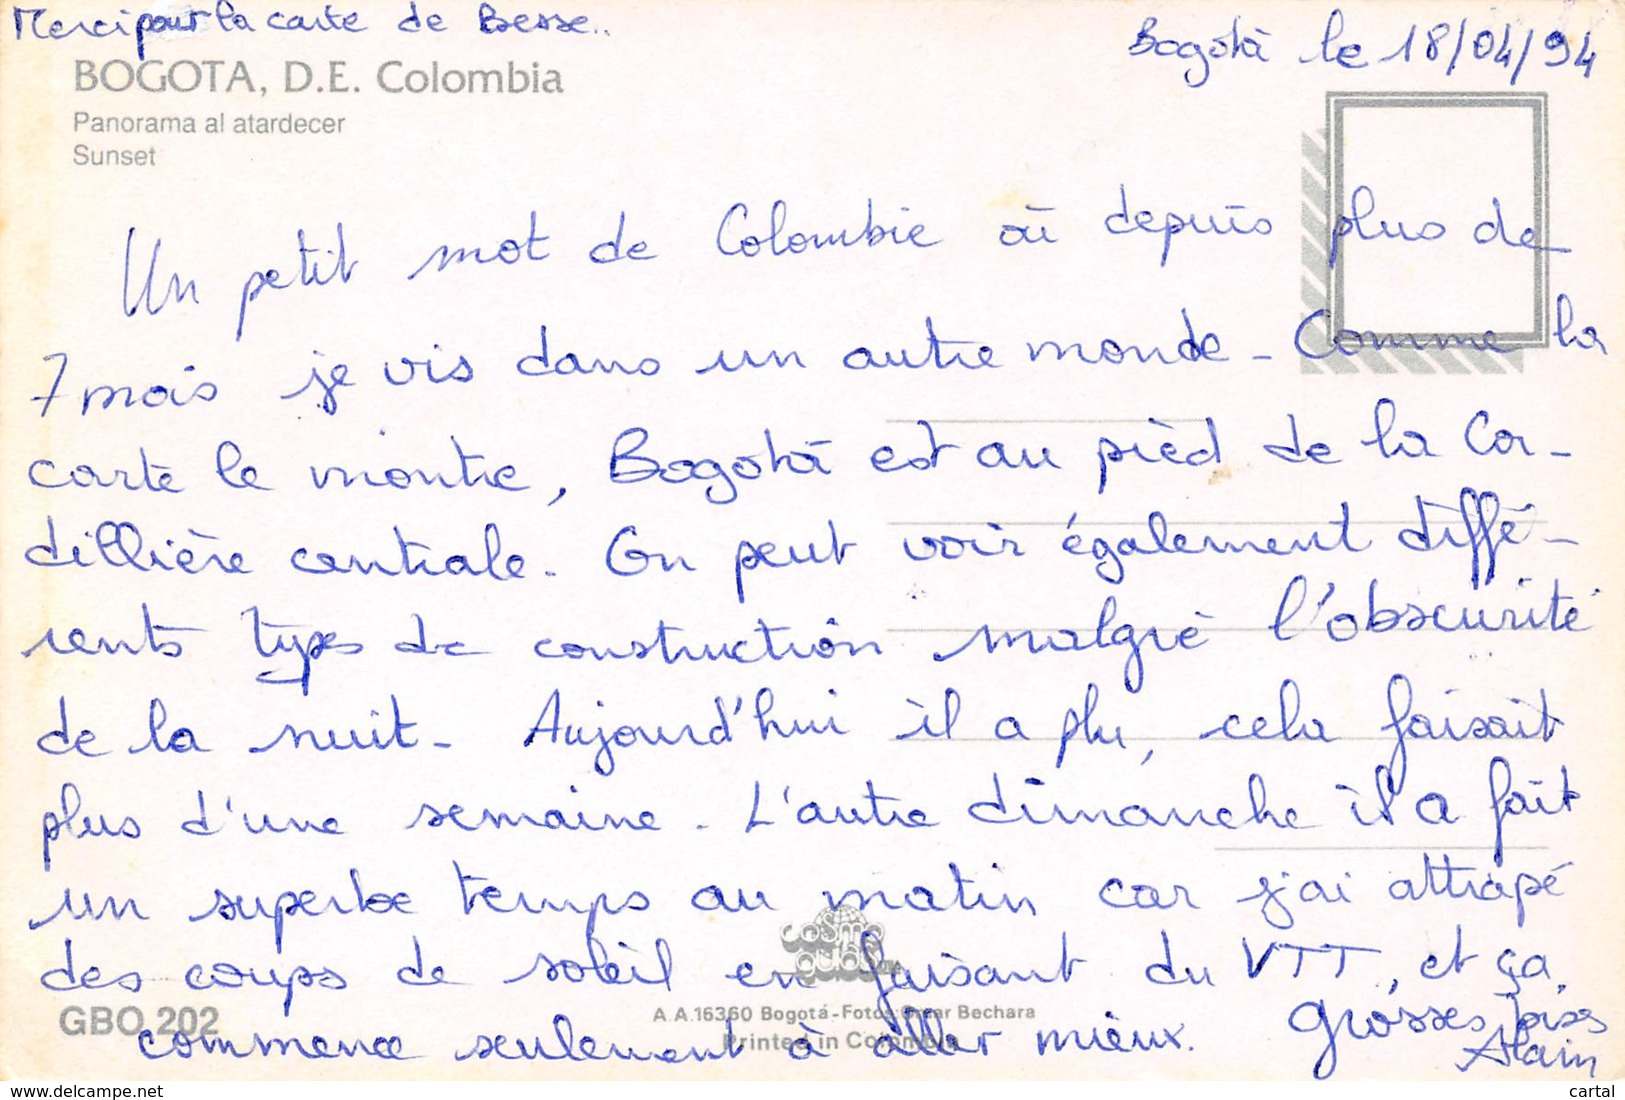 Merci pour la carte de Besse..
Bogotà le 18/04/94
BOGOTA, D.E. Colombia
Panorama al atardecer
Sunset
Un petit mot de Colombie où depuis plus de
7 mois je vis dans un autre monde - Comme la
carte le montre, Bogotà est au pièd de la Cor-
dillière centrale. On peut voir également diffé-
rents types de construction malgré l'obscurité
de la nuit - Aujourd'hui il a plu, cela faisait
plus d'une semaine. L'autre dimanche il a fait
un superbe temps au matin car j'ai attrapé
des coups de soleil en faisant du VTT, et ça
commence seulement à aller mieux. Grosses bises
Alain
cosmo guias
GBO 202
A.A.16360 Bogotá-Fotos: Omar Bechara
Printed in Colombia
cartal
www.delcampe.net